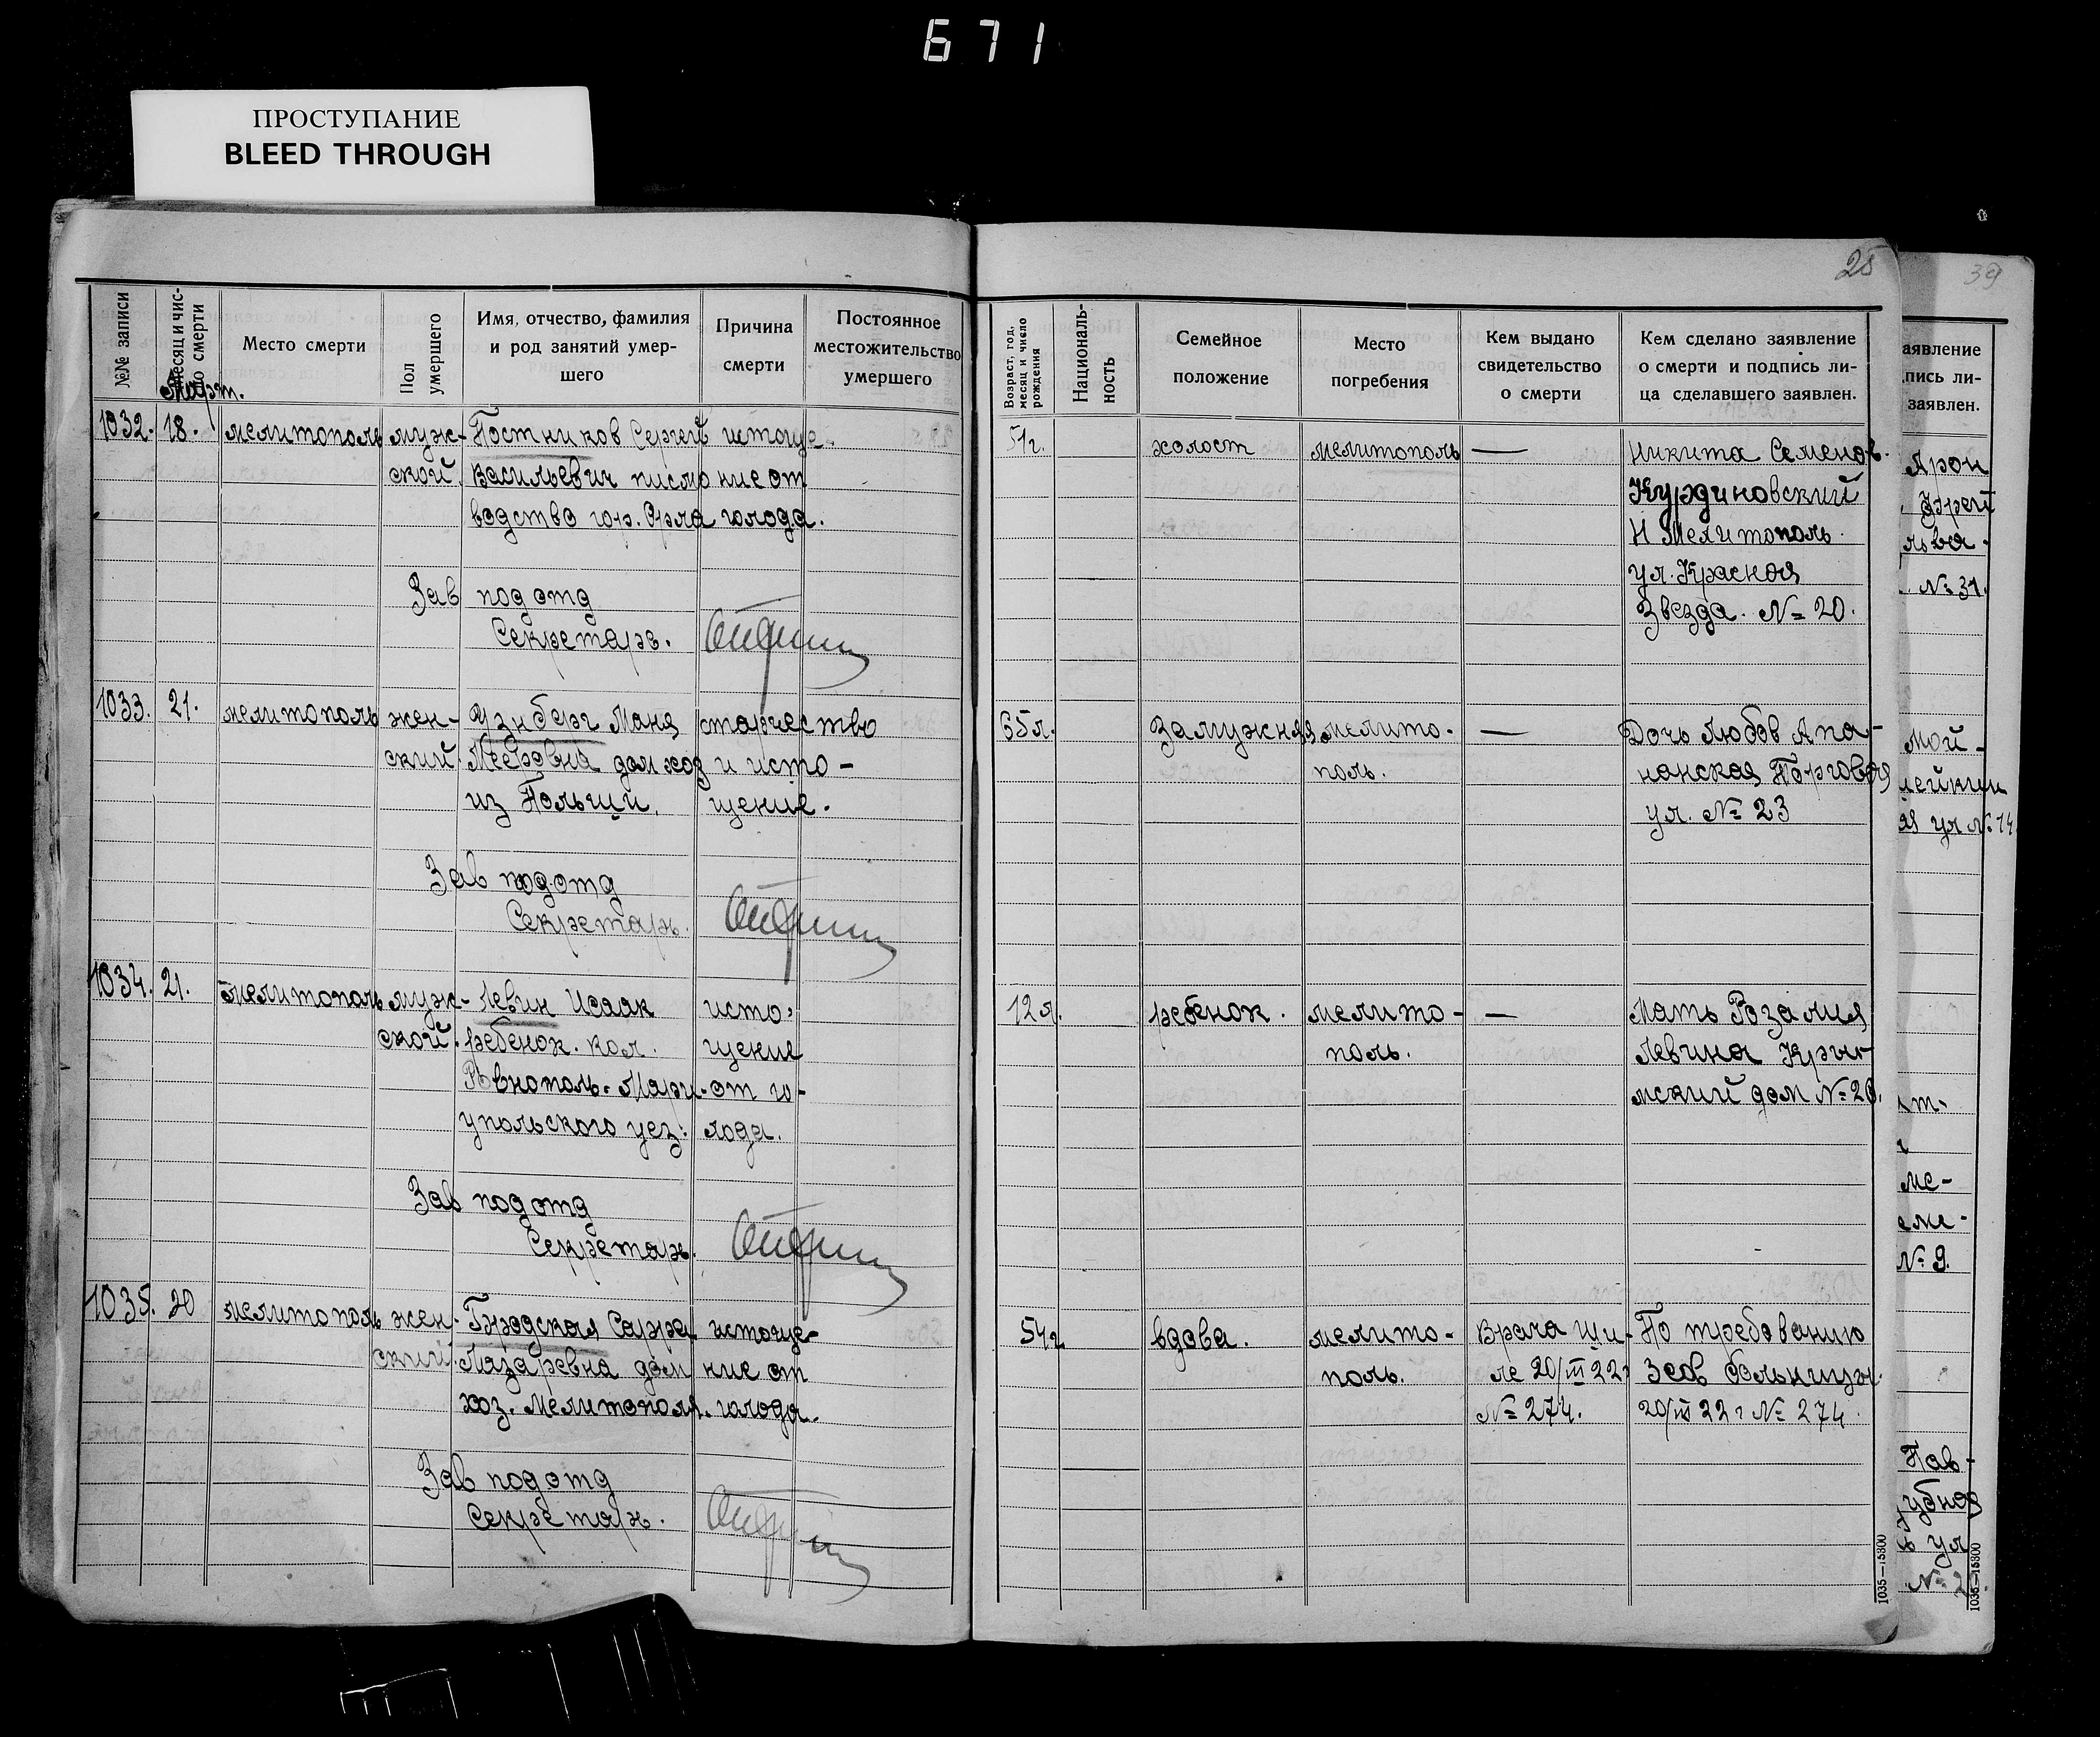 671
ПРОСТУПАНИЕ
BLEED THROUGH
25
39
№№ записи
Месяц и чис-
ло смерти
Место смерти
Пол
умершего
Имя, отчество, фамилия
и род занятий умер-
шего
Причина
смерти
Постоянное
местожительство
умершего
Возраст, год,
месяц и число
рождения
Националь-
ность
Семейное
положение
Место
погребения
Кем выдано
свидетельство
о смерти
Кем сделано заявление
о смерти и подпись ли-
ца сделавшего заявлен.
Март.
1032. 18. мелитополь муж- Постников Сергей истоще- 51г. холост мелитополь — Никита Семенов.
ской. Васильевич писмо ние от Курдиновский
водство гор. Орла голода. Н Мелитополь.
ул. Красная
Зав под отд Звезда. № 20.
Секретарь.
1033. 21. мелитополь жен- Узнберг Маня старчество 65л. Замужняя мелито- — Дочь Любов Апа-
ский. Мееровна дом хоз и исто- поль. нанская Торговая
из Польши. щение. ул. № 23
Зав подотд
Секретарь.
1034. 21. мелитополь муж- Левин Исаак исто- 12л. ребенок. мелито- — Мать Розалия
ской. ребенок. кол. щение поль. Левина Крым-
Ровнополь. Мари- от го- мский дом № 20.
упольского уез. лода.
Зав подотд
Секретарь.
1035. 20 мелитополь жен- Гродская Сарра истоще- 54г вдова. мелито- Врача Ши- По требованию
ский. Лазаревна дом ние от поль. ле 20/III 22г Зав больницы.
хоз. Мелитополя. голода. № 274. 20/III 22г № 274.
Зав подотд
Секретарь.
1035—15300
аявление
пись ли-
заявлен.
Арон
льва-
№ 31.
мой-
лейкин
ая ул № 14
ме-
№ 9.
Пав-
убная
ул
№ 2
1035—15300